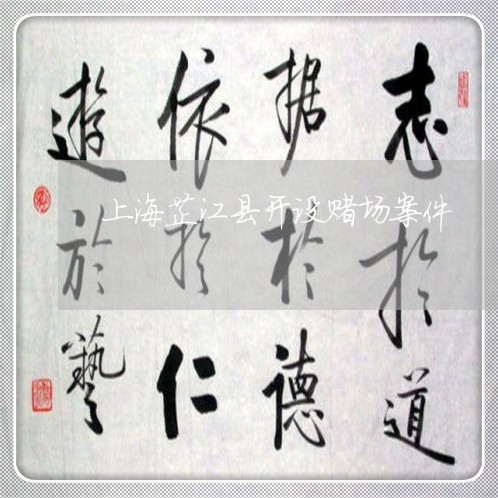 志於道
据於德
依於仁
遊於藝
上海芷江县开设赌场案件